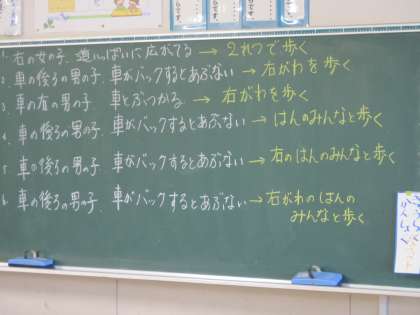 1. 右の女の子. 道いっぱいに広がてる → 2れつで歩く
2. 車の後ろの男の子. 車がバックするとあぶない → 右がわを歩く
3. 車の右の男の子. 車とぶつかる → 右がわを歩く
4. 車の後ろの男の子. 車がバックするとあぶない → はんのみんなと歩く
5. 車の後ろの男の子. 車がバックするとあぶない → 右のはんのみんなと歩く
6. 車の後ろの男の子. 車がバックするとあぶない → 右がわのはんの
みんなと歩く